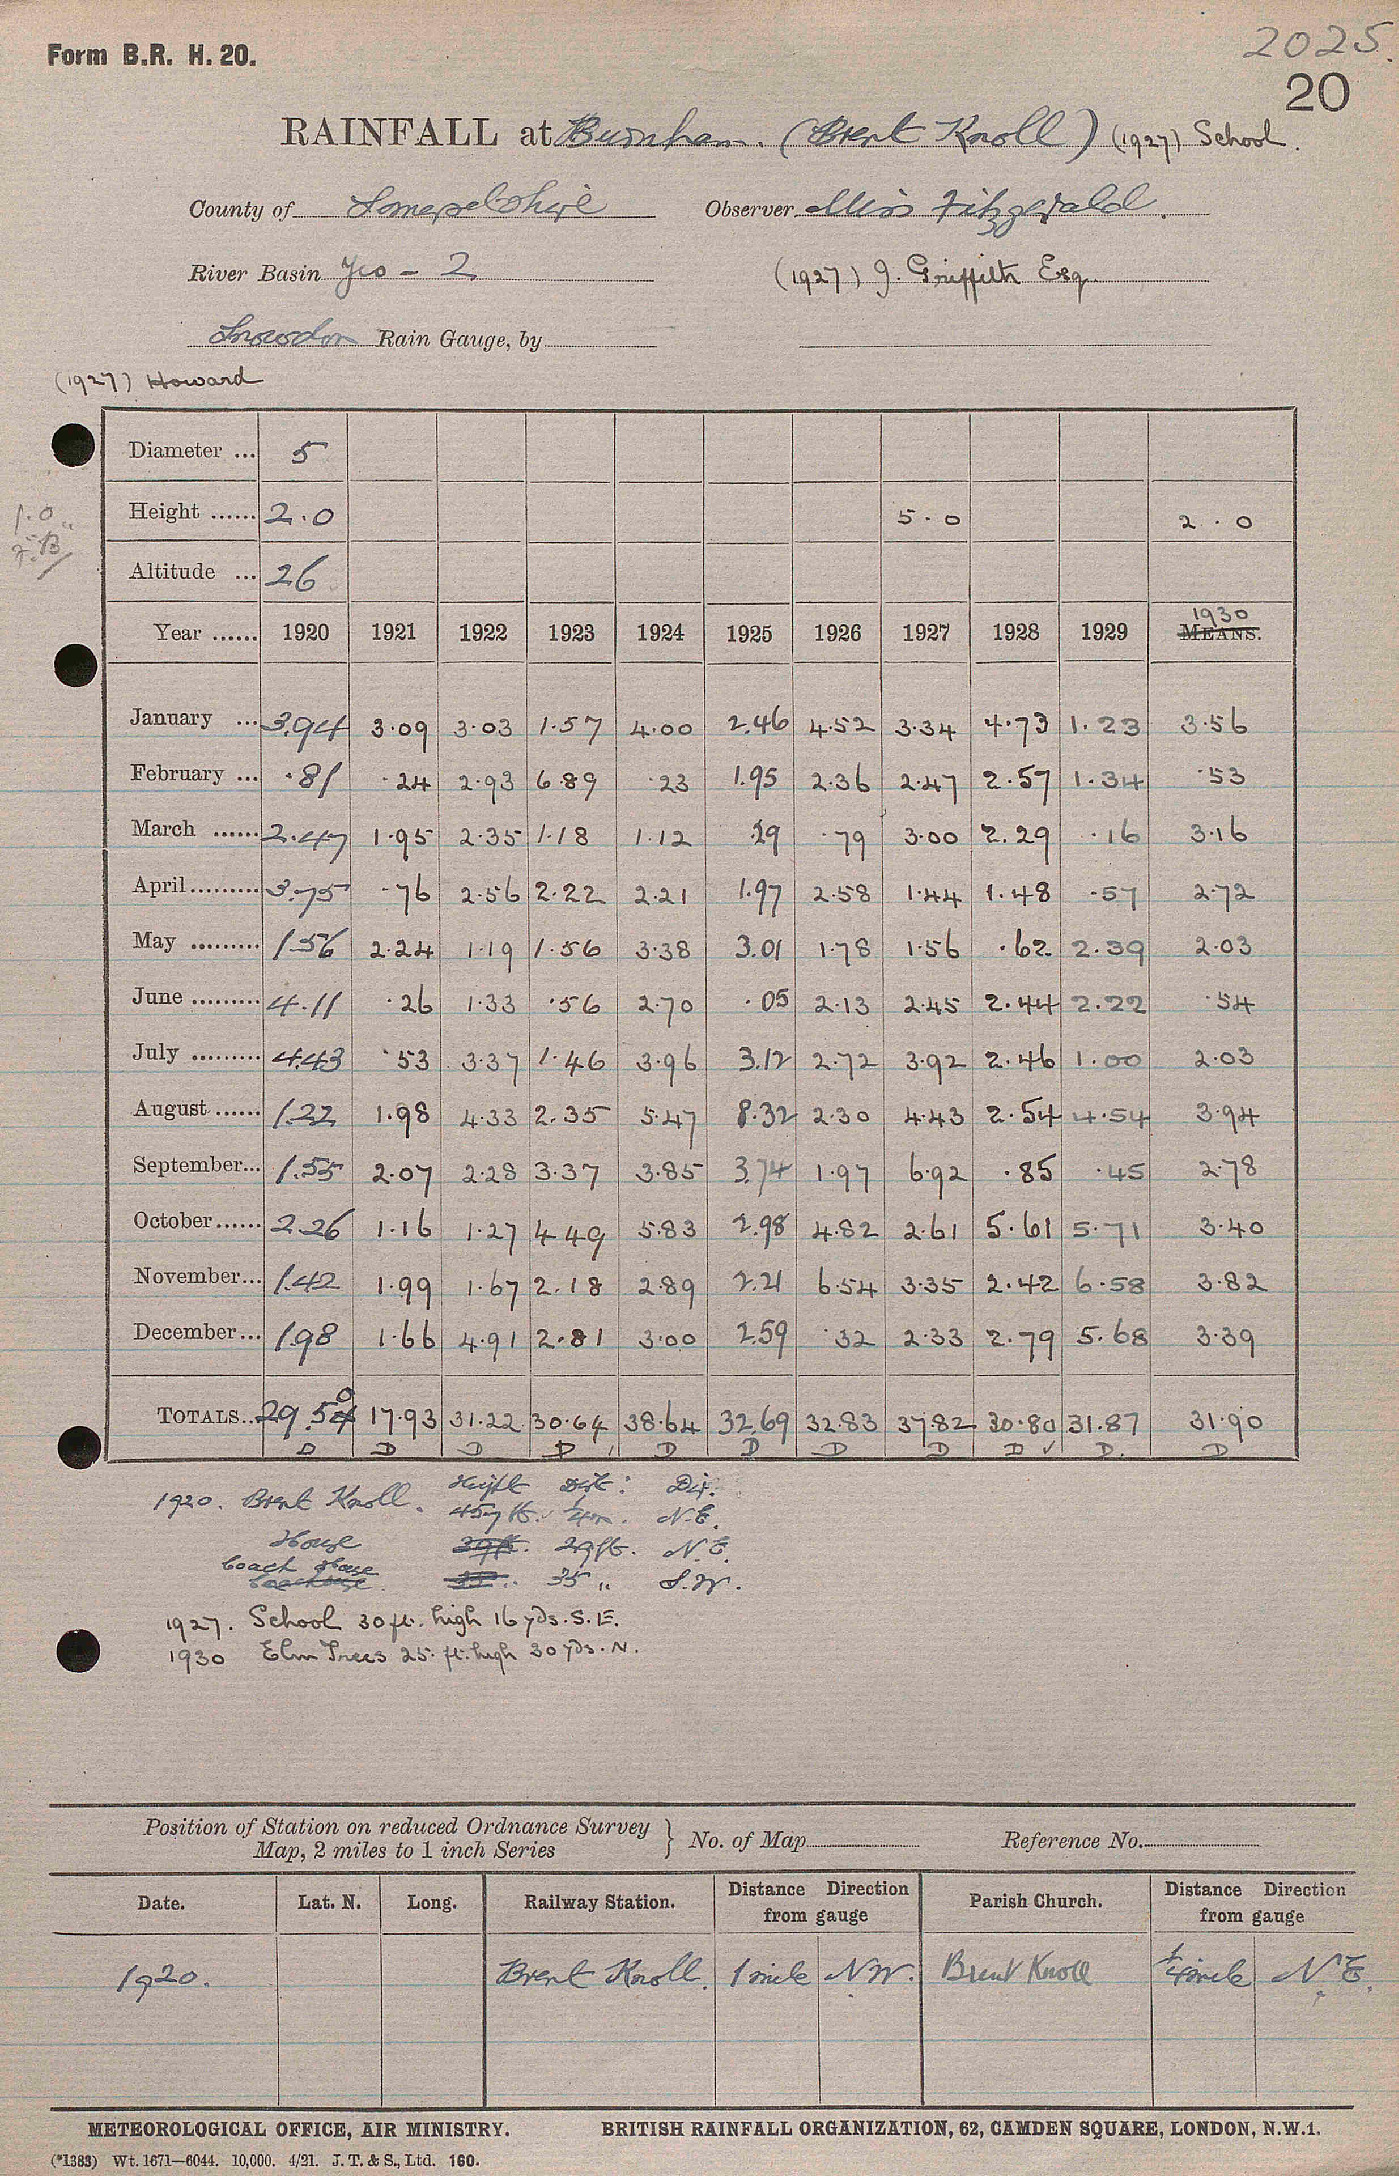 Form B.R. H. 20.
2025.
20
RAINFALL at Burnham. (Brent Knoll) (1927) School.
County of Somersetshire Observer Miss Fitzgerald.
River Basin Yeo - 2 (1927) J. Griffith Esq
Snowdon Rain Gauge, by
(1927) Howard
Diameter ... 5
Height ...... 2.0 5.0 2.0
1.0
Altitude ... 26
1930
Year ...... 1920 1921 1922 1923 1924 1925 1926 1927 1928 1929 MEANS.
January ... 3.94 3.09 3.03 1.57 4.00 2.46 4.52 3.34 4.73 1.23 3.56
February ... .81 .24 2.93 6.89 .23 1.95 2.36 2.47 2.57 1.34 .53
March ...... 2.47 1.95 2.35 1.18 1.12 .29 .79 3.00 2.29 .16 3.16
April......... 3.75 .76 2.56 2.22 2.21 1.97 2.58 1.44 1.48 .57 2.72
May ......... 1.56 2.24 1.19 1.56 3.38 3.01 1.78 1.56 .62 2.39 2.03
June ......... 4.11 .26 1.33 .56 2.70 .05 2.13 2.45 2.44 2.22 .54
July ......... 4.43 .53 3.37 1.46 3.96 3.12 2.72 3.92 2.46 1.00 2.03
August ...... 1.22 1.98 4.33 2.35 5.47 8.32 2.30 4.43 2.54 4.54 3.94
September... 1.55 2.07 2.28 3.37 3.85 3.74 1.97 6.92 .85 .45 2.78
October...... 2.26 1.16 1.27 4.49 5.83 2.98 4.82 2.61 5.61 5.71 3.40
November... 1.42 1.99 1.67 2.18 2.89 2.21 6.54 3.35 2.42 6.58 3.82
December... 1.98 1.66 4.91 2.81 3.00 2.59 .32 2.33 2.79 5.68 3.39
TOTALS... 29.50 17.93 31.22 30.64 38.64 32.69 32.83 37.82 30.80 31.87 31.90
D D D D D D D D D D. D
Height Dist: Dir.
1920. Brent Knoll. 457 ft. 1/4 m. N.E.
House 29ft. 29ft. N.E.
Coach House 35 " S.W.
1927. School 30 ft. high 16 yds. S.E.
1930 Elm Trees 25 ft. high 30 yds. N.
Position of Station on reduced Ordnance Survey
Map, 2 miles to 1 inch Series } No. of Map Reference No.
Date. Lat. N. Long. Railway Station. Distance Direction from gauge Parish Church. Distance Direction from gauge
1920. Brent Knoll. 1 mile N.W. Brent Knoll 1/4 mile N.E.
METEOROLOGICAL OFFICE, AIR MINISTRY. BRITISH RAINFALL ORGANIZATION, 62, CAMDEN SQUARE, LONDON, N.W.1.
(*1383) Wt. 1671—6044. 10,000. 4/21. J. T. & S., Ltd. 160.